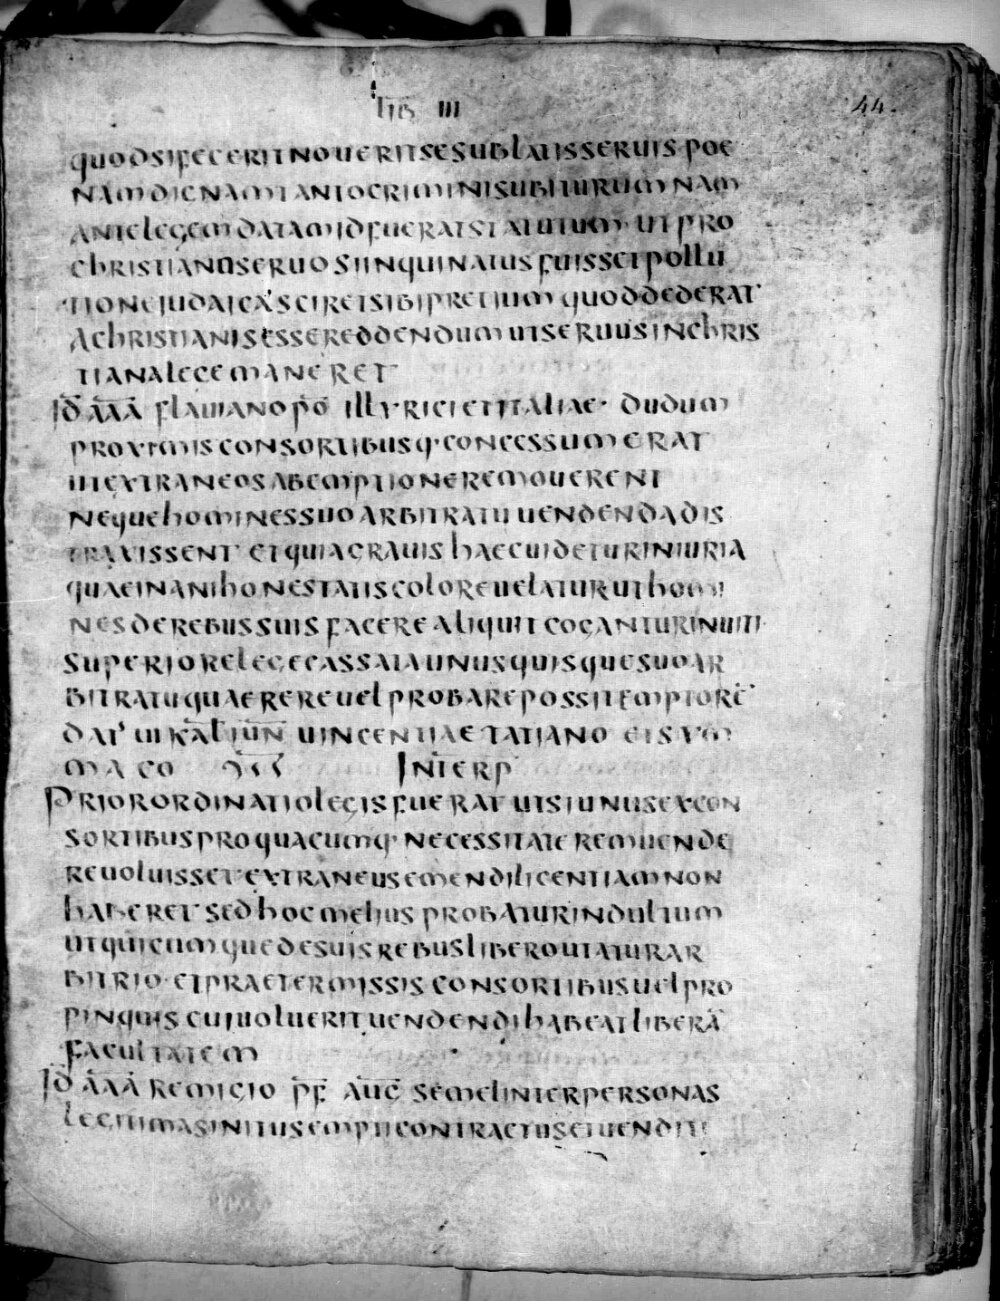 LIB III
44.
QUODSIFECERITNOUERITSESUBLATISSERUIS POE
NAMDIGNAMTANTOCRIMINISUBITURUMNAM
ANTELEGEMDATAMIDFUERATSTATUTUM UT PRO
CHRISTIANUSERUOSIINQUINATUS FUISSETPOLLU
TIONEIUDAICASCIRETSIBIPRETIUM QUODDEDERAT
ACHRISTIANISESSEREDDENDUMUTSERUUSINCHRIS
TIANALEGEMANERET
ID AAA FLAUIANO PO ILLYRICIETITALIAE DUDUM
PROXIMISCONSORTIBUSQ CONCESSUMERAT
UTEXTRANEOSABEMPTIONEREMOUERENT
NEQUEHOMINESSUOARBITRATUUENDENDADIS
TRAXISSENT ETQUIAGRAUIS HAECUIDETURINIURIA
QUAEINANIHONESTATISCOLOREUELATURUTHOMI
NESDEREBUSSUIS FACEREALIQUIT COGANTURINUITI
SUPERIORELEGECASSATAUNUSQUISQUESUOAR
BITRATUQUAEREREUELPROBAREPOSSITEMPTORE
DAT UI KAL IUN UINCENTIAE TATIANO EISUM
MACO INTERP
PRIORORDINATIOLEGISFUERAT UTSIUNUSEXCON
SORTIBUSPROQUACUMQ NECESSITATE REMUENDE
REUOLUISSET EXTRANEUSEMENDILICENTIAMNON
HABERET SED HOCMELIUS PROBATURINDULTUM
UTQUICUMQUEDESUISREBUSLIBEROUTATURAR
BITRIO ETPRAETERMISSIS CONSORTIBUSUELPRO
PINQUIS CUIUOLUERITUENDENDIHABEATLIBERA
FACULTATEM
ID AAA REMIGIO PF AUG SEMELINTERPERSONAS
LEGITIMASINITUSEMPTICONTRACTUSETUENDITI